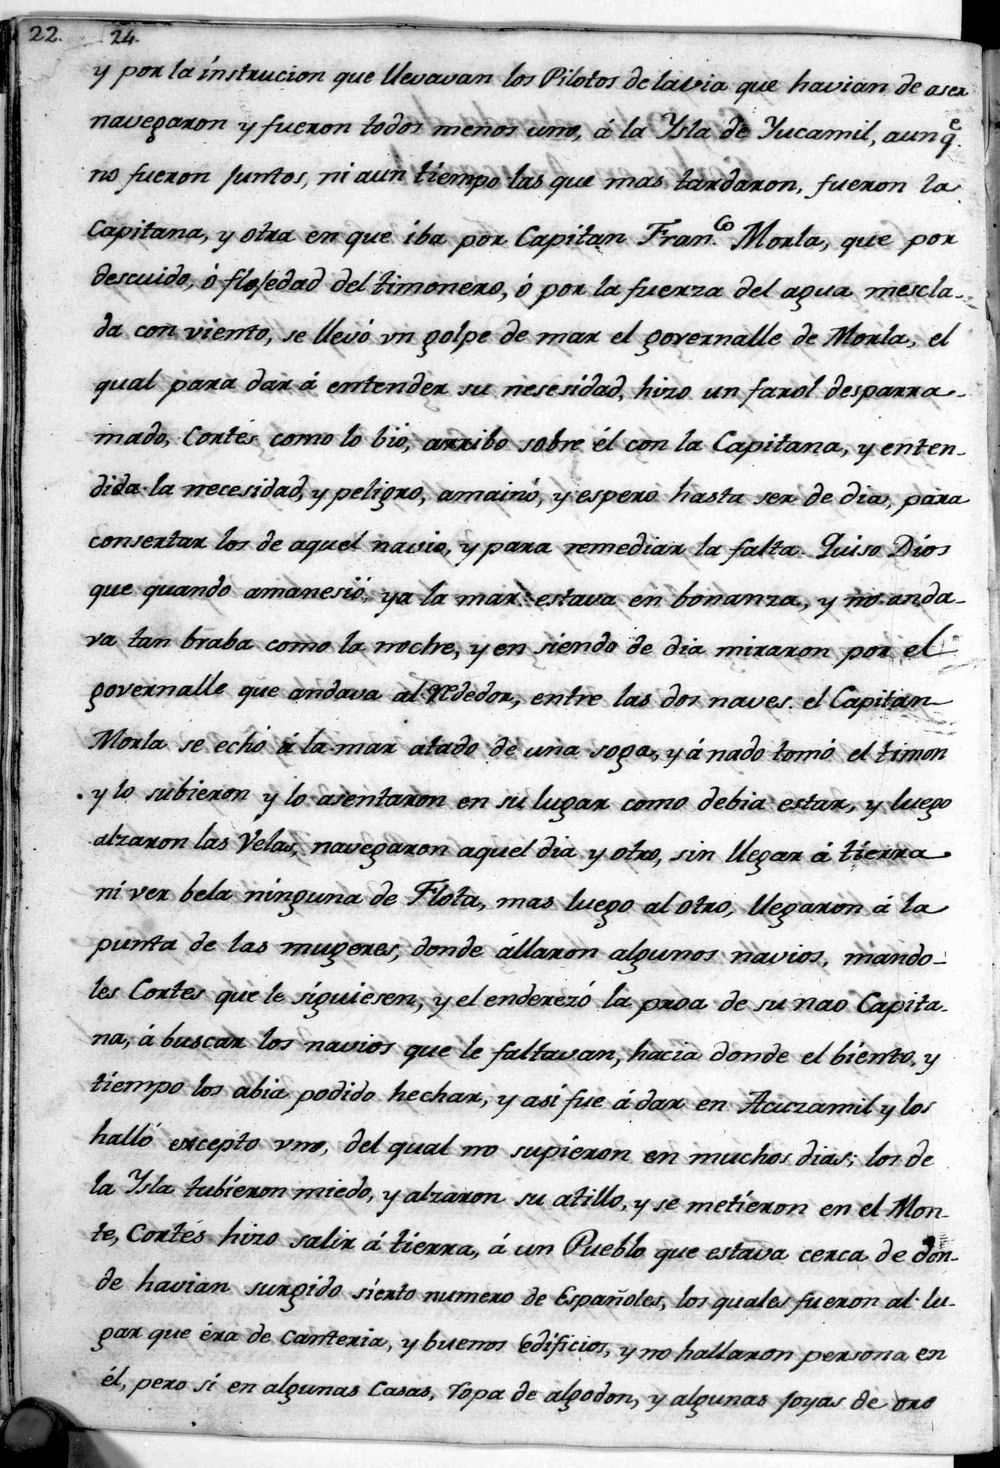 22. 24.
y por la instrucion que llevavan los Pilotos de la via que havian de aser
navegaron y fueron todos menos uno, á la Ysla de Yucamil, aunq.e
no fueron juntos, ni aun tiempo las que mas tardaron, fueron la
Capitana, y otra en que iba por Capitan Fran.co Morla, que por
descuido, ó flojedad del timonero, ó por la fuerza del agua mescla-
da con viento, se llevó vn golpe de mar el governalle de Morla, el
qual para dar á entender su nesesidad, hizo un farol desparra-
mado, Cortés como lo bio, arribo sobre él con la Capitana, y enten-
dida la necesidad, y peligro, amainó, y espero hasta ser de dia, para
consertar los de aquel navio, y para remediar la falta. Quiso Dios
que quando amanesió, ya la mar estava en bonanza, y no anda-
va tan braba como la noche, y en siendo de dia miraron por el
governalle que andava al rededor, entre las dos naves. el Capitan
Morla se echó á la mar atado de una soga, y á nado tomó el timon
y lo subieron y lo asentaron en su lugar como debia estar, y luego
alzaron las Velas, navegaron aquel dia y otro, sin llegar á tierra
ni ver bela ninguna de Flota, mas luego al otro, llegaron á la
punta de las mugeres, donde állaron algunos navios, mando-
les Cortes que le siguiesen, y el enderezó la proa de su nao Capita-
na, á buscar los navios que le faltavan, hacia donde el biento, y
tiempo los abia podido hechar, y asi fue á dar en Acuzamil y los
halló excepto vno, del qual no supieron en muchos dias; los de
la Ysla tubieron miedo, y alzaron su atillo, y se metieron en el Mon-
te, Cortés hizo salir á tierra, á un Pueblo que estava cerca de don-
de havian surgido sierto numero de Españoles, los quales fueron al lu-
gar que éra de canteria, y buenos edificios, y no hallaron persona en
él, pero si en algunas Casas, ropa de algodon, y algunas joyas de oro